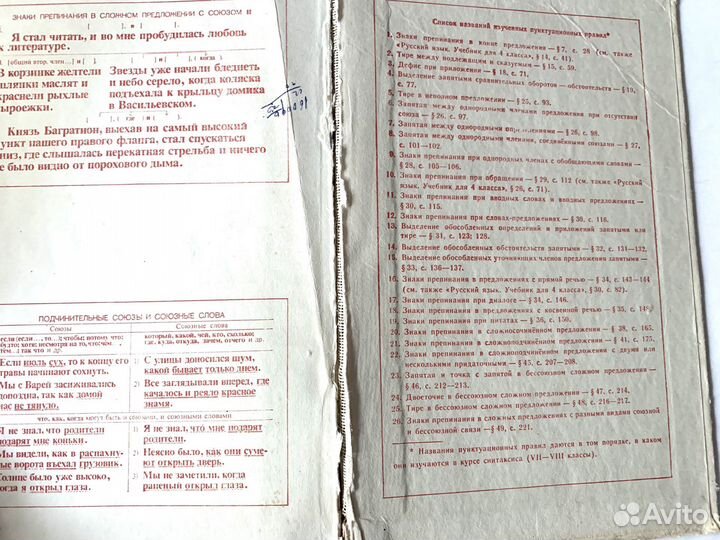 ЗНАКИ ПРЕПИНАНИЯ В СЛОЖНОМ ПРЕДЛОЖЕНИИ С СОЮЗОМ И
Я стал читать, и во мне пробудилась любовь
к литературе.
[общий втор. член...] и [ ], ( когда )
В корзинке желтели
шлянки маслят и
краснели рыхлые
сыроежки.
Звезды уже начали бледнеть
и небо серело, когда коляска
подъехала к крыльцу домика
в Васильевском.
Князь Багратион, выехав на самый высокий
пункт нашего правого фланга, стал спускаться
вниз, где слышалась перекатная стрельба и ничего
не было видно от порохового дыма.
ПОДЧИНИТЕЛЬНЫЕ СОЮЗЫ И СОЮЗНЫЕ СЛОВА
Союзы
Союзные слова
если (если ... то ...); чтобы; потому что;
который, какой, чей, кто, сколько;
где, куда, откуда, зачем, отчего и др.
Если июль сух, то к концу его
травы начинают сохнуть.
Мы с Варей засиживались
допоздна, так как домой
нас не тянуло.
1) С улицы доносился шум,
какой бывает только днем.
2) Все заглядывали вперед, где
качалось и реяло красное
знамя.
что, как, когда могут быть и союзами, и союзными словами
Я не знал, что родители
подарят мне коньки.
Мы видели, как в распахну-
тые ворота въехал грузовик.
Солнце было уже высоко,
когда я открыл глаза.
1) Я не знал, что мне подарят
родители.
2) Неясно было, как они суме-
ют открыть дверь.
3) Мы не заметили, когда
раненый открыл глаза.
Список названий изученных пунктуационных правил*
1. Знаки препинания в конце предложения — § 7, с. 28 (см. также
«Русский язык. Учебник для 4 класса», § 14, с. 41).
2. Тире между подлежащим и сказуемым — § 15, с. 59.
3. Дефис при приложении — § 18, с. 71.
4. Выделение запятыми сравнительных оборотов — обстоятельств — § 19,
с. 77.
5. Тире в неполном предложении — § 25, с. 93.
6. Запятая между однородными членами предложения при отсутствии
союза — § 26, с. 97.
7. Запятая между однородными определениями — § 26, с. 98.
8. Запятая между однородными членами, соединёнными союзами — § 27,
с. 101—102.
9. Знаки препинания при однородных членах с обобщающими словами —
§ 28, с. 105—106.
10. Знаки препинания при обращении — § 29, с. 112 (см. также «Русский
язык. Учебник для 4 класса», § 26, с. 71).
11. Знаки препинания при вводных словах и вводных предложениях —
§ 30, с. 115.
12. Знаки препинания при словах-предложениях — § 30, с. 116.
13. Выделение обособленных определений и приложений запятыми или
тире — § 31, с. 123; 128.
14. Выделение обособленных обстоятельств запятыми — § 32, с. 131—132.
15. Выделение обособленных уточняющих членов предложения запятыми —
§ 33, с. 136—137.
16. Знаки препинания в предложениях с прямой речью — § 34, с. 143—144
(см. также «Русский язык. Учебник для 4 класса», § 30, с. 82).
17. Знаки препинания при диалоге — § 34, с. 146.
18. Знаки препинания в предложениях с косвенной речью — § 35, с. 148.
19. Знаки препинания при цитатах — § 36, с. 150.
20. Знаки препинания в сложносочинённом предложении — § 38, с. 165.
21. Знаки препинания в сложноподчинённом предложении — § 41, с. 175.
22. Знаки препинания в сложноподчинённом предложении с двумя или
несколькими придаточными — § 45, с. 207—208.
23. Запятая и точка с запятой в бессоюзном сложном предложении —
§ 46, с. 212—213.
24. Двоеточие в бессоюзном сложном предложении — § 47, с. 214.
25. Тире в бессоюзном сложном предложении — § 48, с. 216—217.
26. Знаки препинания в сложных предложениях с разными видами союзной
и бессоюзной связи — § 49, с. 221.
* Названия пунктуационных правил даются в том порядке, в каком
они изучаются в курсе синтаксиса (VII—VIII классы).
Avito